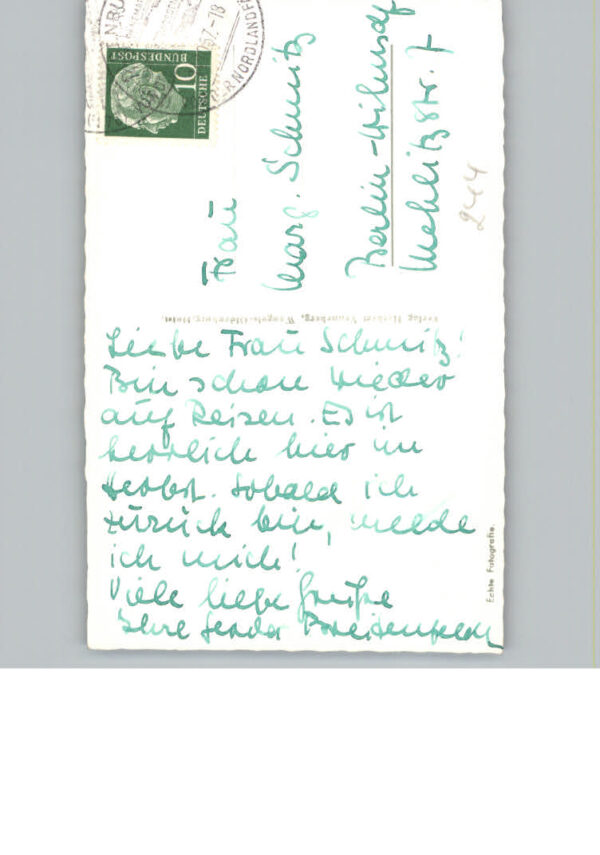 Liebe Frau Schmitz!
Bin schon wieder
auf Reisen. Es ist
herrlich hier im
Herbst. Sobald ich
zurück bin, melde
ich mich!
Viele liebe Grüße
Ihre Breitenfeld
Frau
Marg. Schmitz
Berlin-Wilmsdf
Str. 7
244
10
DEUTSCHE
BUNDESPOST
Echte Fotografie.